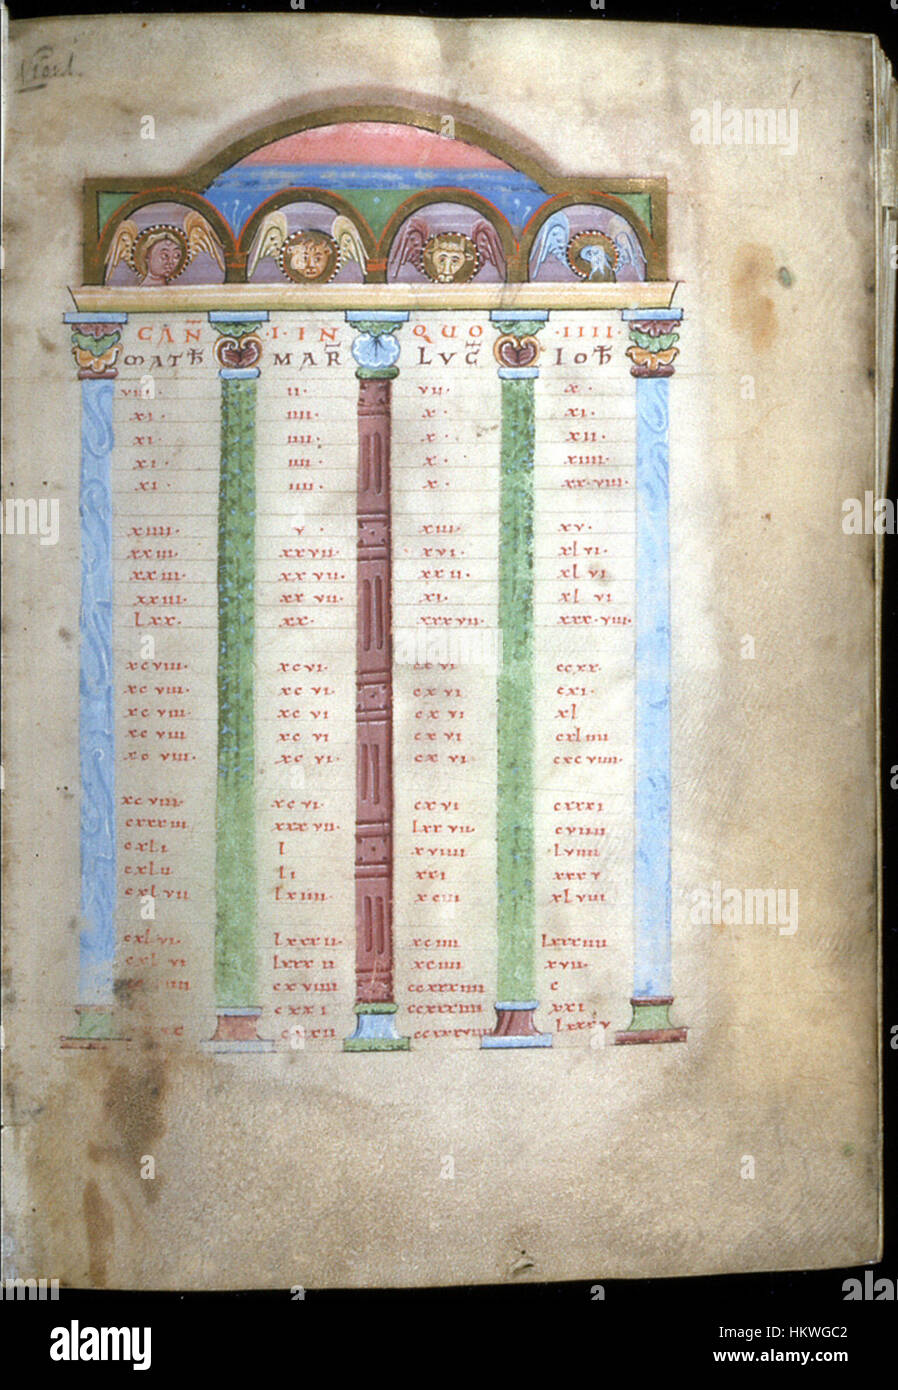 CAÑ · I · IÑ QUO · IIII ·
MATħ MAR LUC IOħ
viii · ii · vii · x ·
xi · iiii · x · xi ·
xi · iiii · x · xii ·
xi · iiii · x · xiiii ·
xi · iiii · x · xx·viii·
xiiii · v · xiii · xv ·
xxiii · xxvii · xvi · xl vi ·
xxiii · xx vii · xxii · xl vi
xxiii · xx vii · xi · xl vi
lxx · xx · xxxvii · xxx·viii·
xcviii · xcvi · cxvi · ccxx ·
xc viii · xc vi · cxvi · cxi ·
xc viii · xc vi cx vi xl
xc viii xc vi cx vi cxliiii
xc viii · xc vi · cx vi cxcviiii ·
xcviiii xcvi cxvi cxxxi
cxxxiii xxxvii · lxxvii cviiii
cxli l xviiii lviiii
cxlii li xxi xxxv
cxlvii lxiiii xciii xlviii
cxlvi · lxxxii · xciiii lxxxiiii
cxl vi lxxxii xciiii xvii ·
cxviiii ccxxxiiii c
cxxi ccxxxiiii xxi
cxxii lxxxv
alamy
Image ID: HKWGC2
www.alamy.com